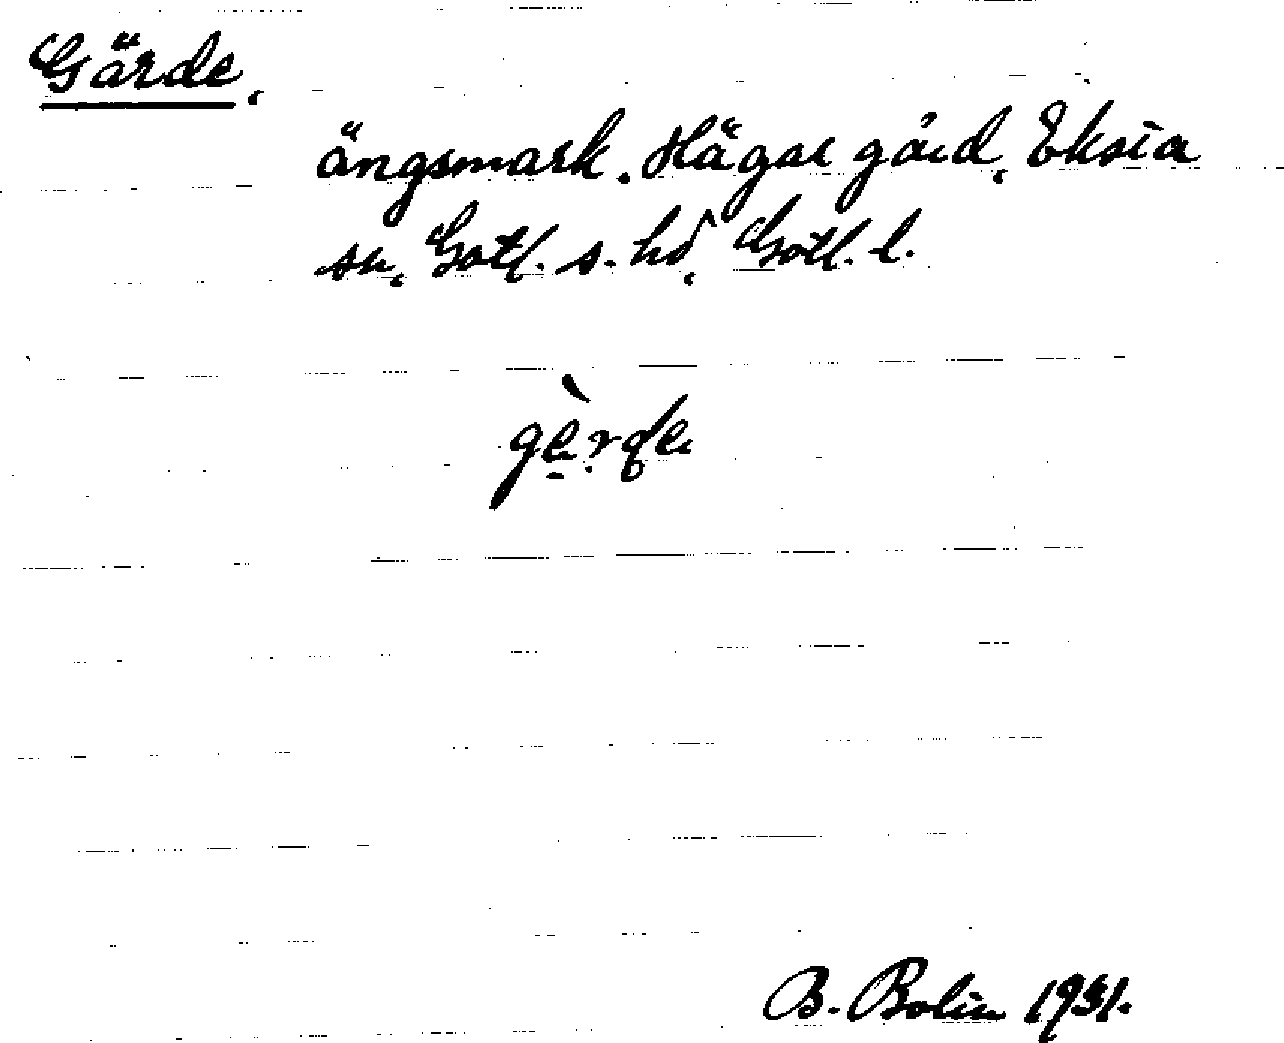 Gärde,
ängsmark. Hägar gård, Eksta
sn, Gotl. s. hd, Gotl. l.
gèrde
B. Bolin 1931.